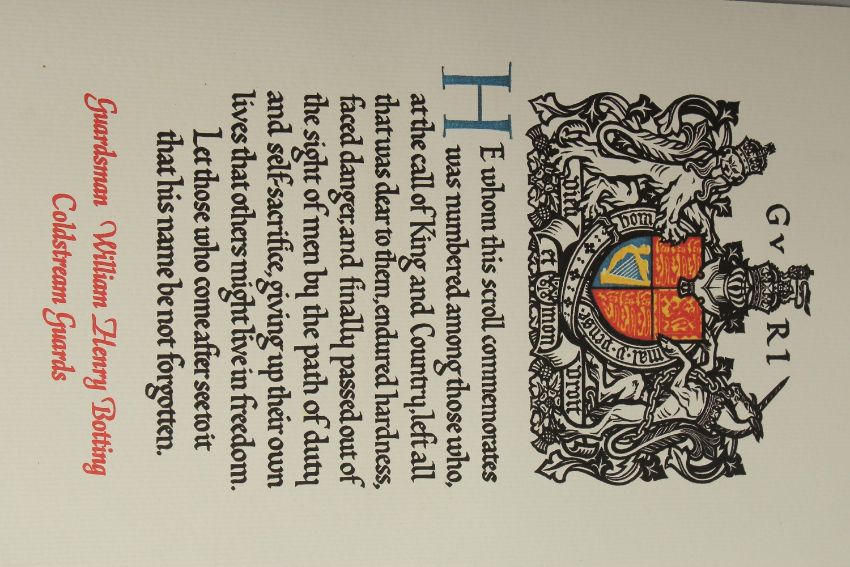 GV RI
HE whom this scroll commemorates
was numbered among those who,
at the call of King and Country, left all
that was dear to them, endured hardness,
faced danger, and finally passed out of
the sight of men by the path of duty
and self-sacrifice, giving up their own
lives that others might live in freedom.
Let those who come after see to it
that his name be not forgotten.
Guardsman William Henry Botting
Coldstream Guards